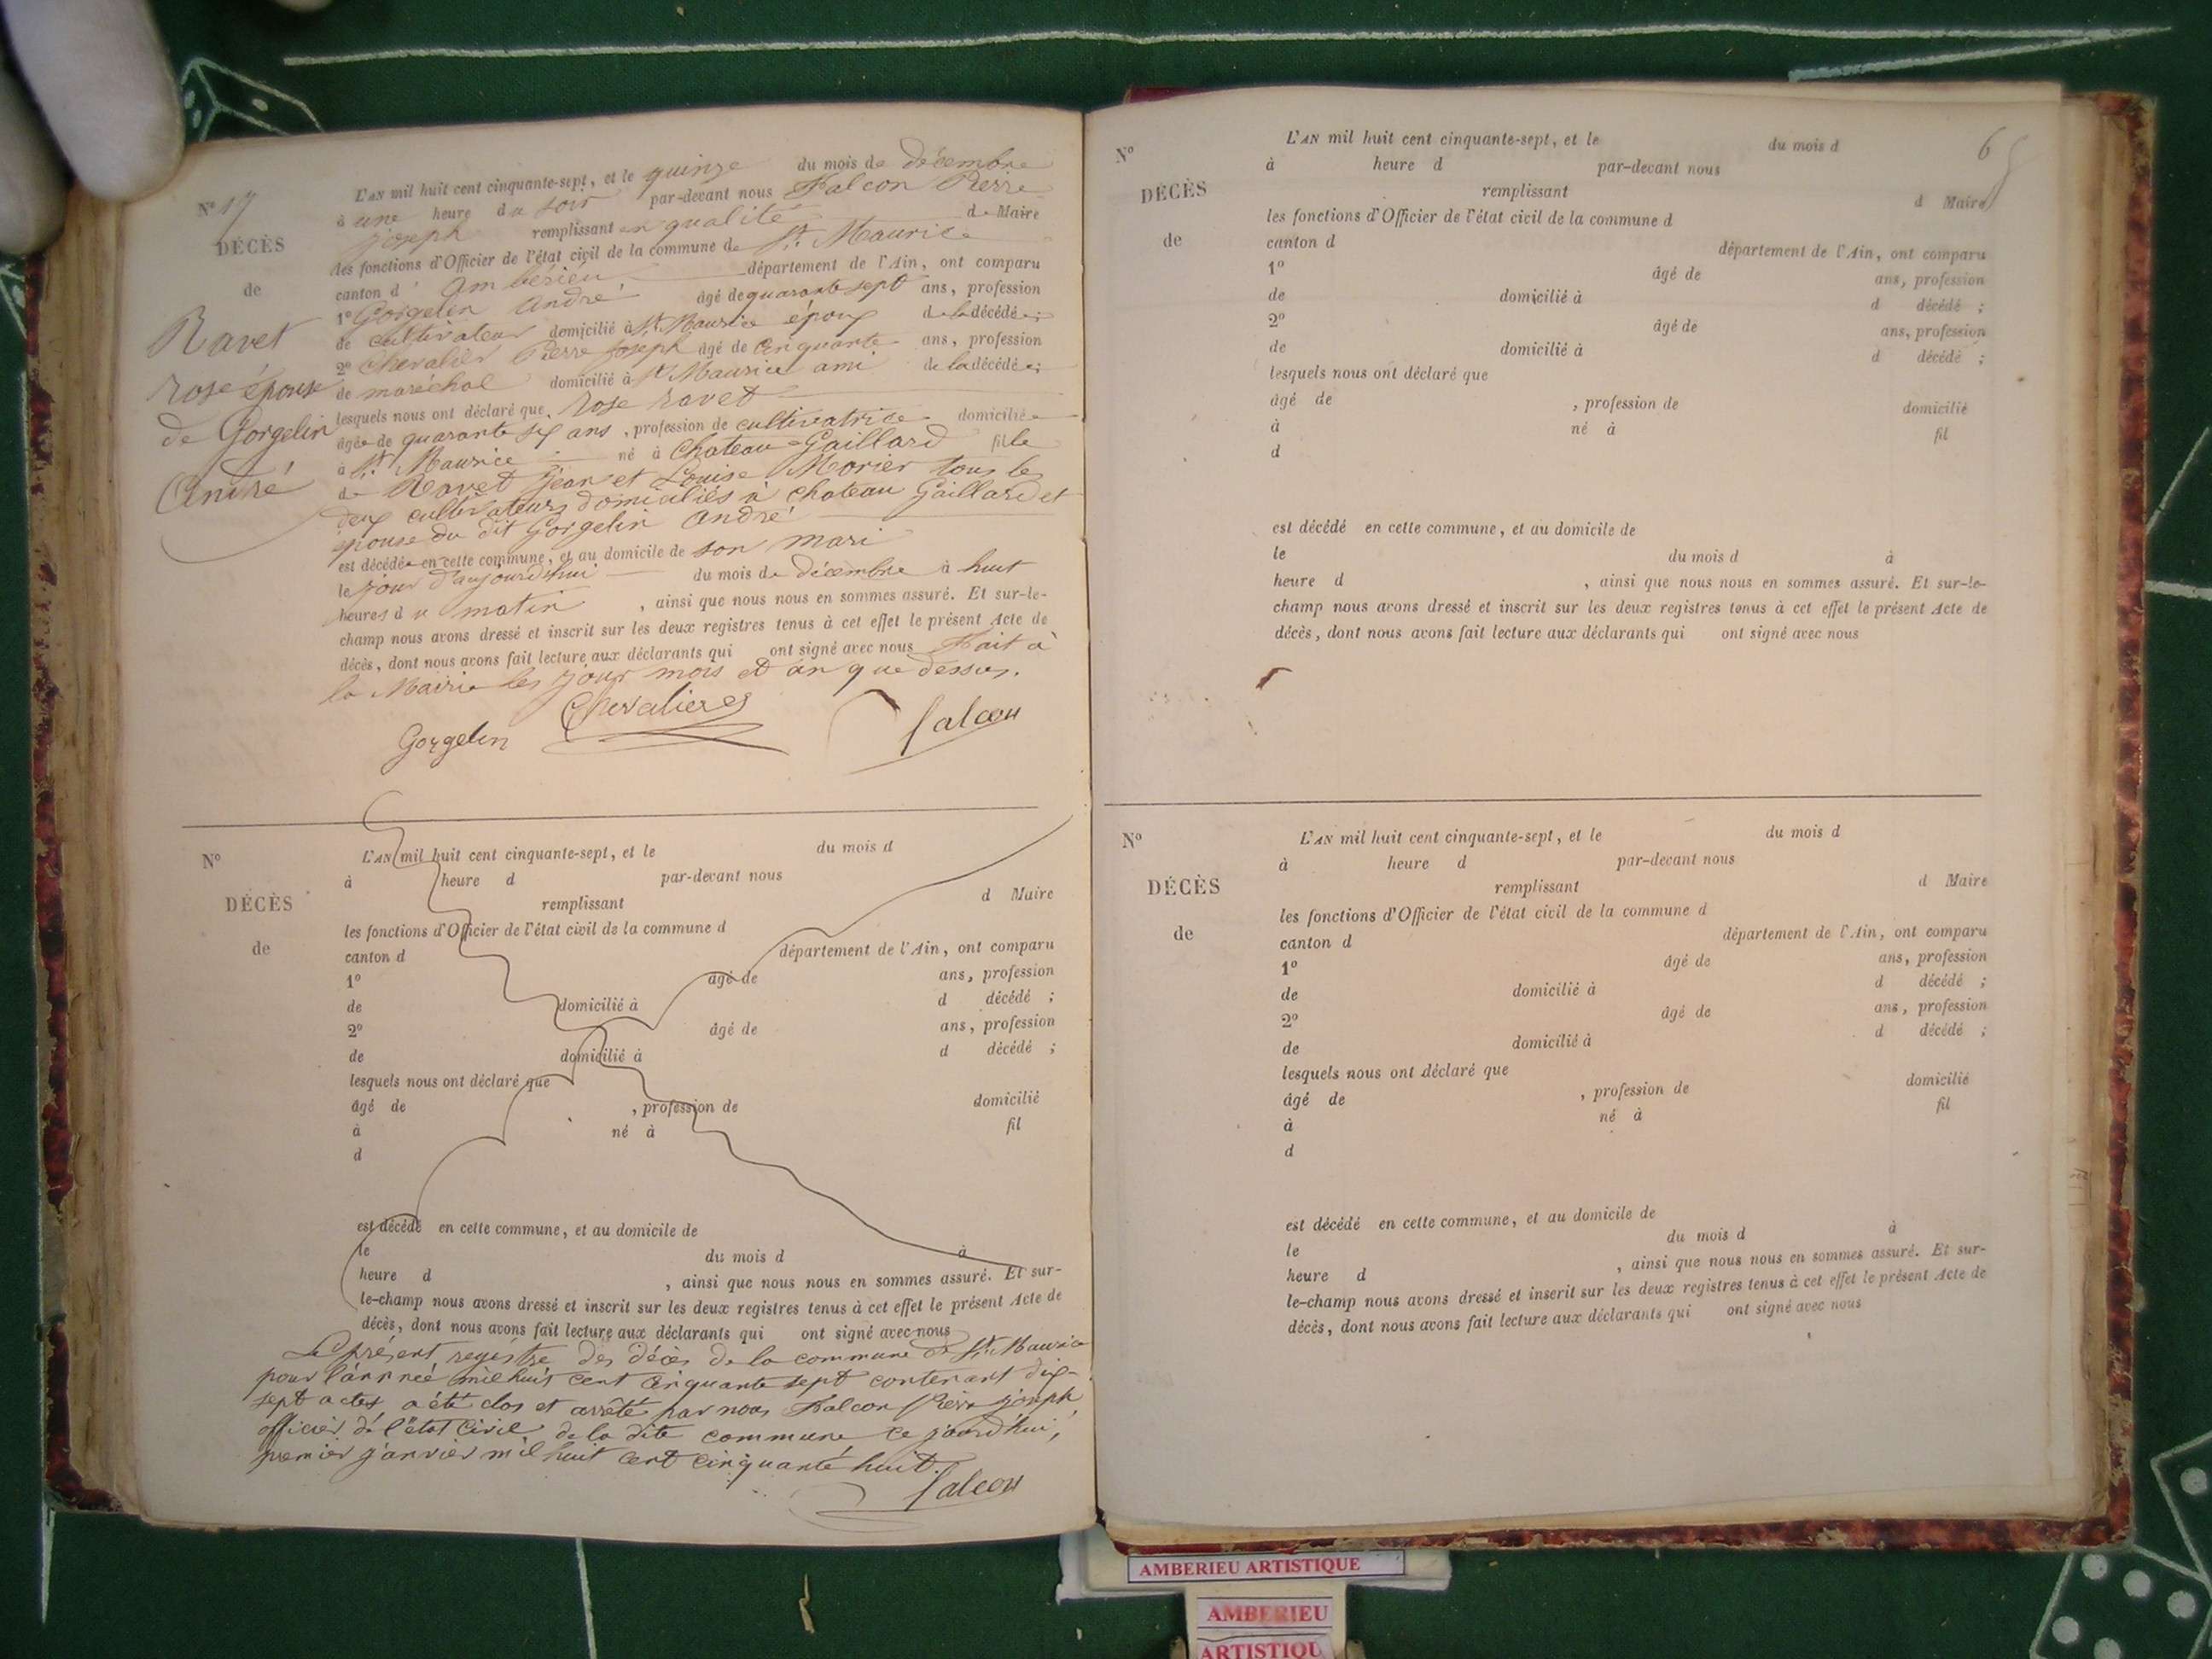 N° 17
DÉCÈS
de
Ravet
rose épouse
de Gorgelin
André
L'AN mil huit cent cinquante-sept, et le quinze du mois de décembre
à une heure du soir par-devant nous Falcon Pierre
joseph remplissant en qualité de Maire
les fonctions d'Officier de l'état civil de la commune de St. Maurice
canton d'Ambérieu département de l'Ain, ont comparu
1° Gorgelin André âgé de quarante sept ans, profession
de cultivateur domicilié à St. Maurice époux de la décédée;
2° Chevalier Pierre Joseph âgé de Cinquante ans, profession
de maréchal domicilié à St Maurice ami de la décédée;
lesquels nous ont déclaré que rose ravet
âgée de quarante six ans, profession de cultivatrice domiciliée
à St. Maurice né à Chateau-Gaillard fille
de Ravet Jean et Louise Morier tous les
deux cultivateurs domiciliés à chateau Gaillard et
épouse du dit Gorgelin André
est décédée en cette commune, et au domicile de son mari
le jour d'aujourd'hui du mois de décembre à huit
heures du matin, ainsi que nous nous en sommes assuré. Et sur-le-
champ nous avons dressé et inscrit sur les deux registres tenus à cet effet le présent Acte de
décès, dont nous avons fait lecture aux déclarants qui ont signé avec nous Fait à
la Mairie les jour mois et an que dessus.
Gorgelin Chevalier falcon
N°
DÉCÈS
de
L'AN mil huit cent cinquante-sept, et le du mois d
à heure d par-devant nous
remplissant d Maire
les fonctions d'Officier de l'état civil de la commune d
canton d département de l'Ain, ont comparu
1° âgé de ans, profession
de domicilié à d décédé ;
2° âgé de ans, profession
de domicilié à d décédé ;
lesquels nous ont déclaré que
âgé de , profession de domicilié
à né à fil
d
est décédé en cette commune, et au domicile de
le du mois d à
heure d , ainsi que nous nous en sommes assuré. Et sur-
le-champ nous avons dressé et inscrit sur les deux registres tenus à cet effet le présent Acte de
décès, dont nous avons fait lecture aux déclarants qui ont signé avec nous
Le présent registre des décès de la commune de St. Maurice
pour l'année mil huit cent cinquante sept contenant dix-
sept actes a été clos et arrêté par nous Falcon Pierre joseph
officier de l'état Civil de la dite commune ce jourd'hui,
premier janvier mil huit cent cinquante huit.
falcon
6
N°
DÉCÈS
de
L'AN mil huit cent cinquante-sept, et le du mois d
à heure d par-devant nous
remplissant d Maire
les fonctions d'Officier de l'état civil de la commune d
canton d département de l'Ain, ont comparu
1° âgé de ans, profession
de domicilié à d décédé ;
2° âgé de ans, profession
de domicilié à d décédé ;
lesquels nous ont déclaré que
âgé de , profession de domicilié
à né à fil
d
est décédé en cette commune, et au domicile de
le du mois d à
heure d , ainsi que nous nous en sommes assuré. Et sur-le-
champ nous avons dressé et inscrit sur les deux registres tenus à cet effet le présent Acte de
décès, dont nous avons fait lecture aux déclarants qui ont signé avec nous
N°
DÉCÈS
de
L'AN mil huit cent cinquante-sept, et le du mois d
à heure d par-devant nous
remplissant d Maire
les fonctions d'Officier de l'état civil de la commune d
canton d département de l'Ain, ont comparu
1° âgé de ans, profession
de domicilié à d décédé ;
2° âgé de ans, profession
de domicilié à d décédé ;
lesquels nous ont déclaré que
âgé de , profession de domicilié
à né à fil
d
est décédé en cette commune, et au domicile de
le du mois d à
heure d , ainsi que nous nous en sommes assuré. Et sur-
le-champ nous avons dressé et inscrit sur les deux registres tenus à cet effet le présent Acte de
décès, dont nous avons fait lecture aux déclarants qui ont signé avec nous
AMBERIEU ARTISTIQUE
AMBERIEU
ARTISTIQU